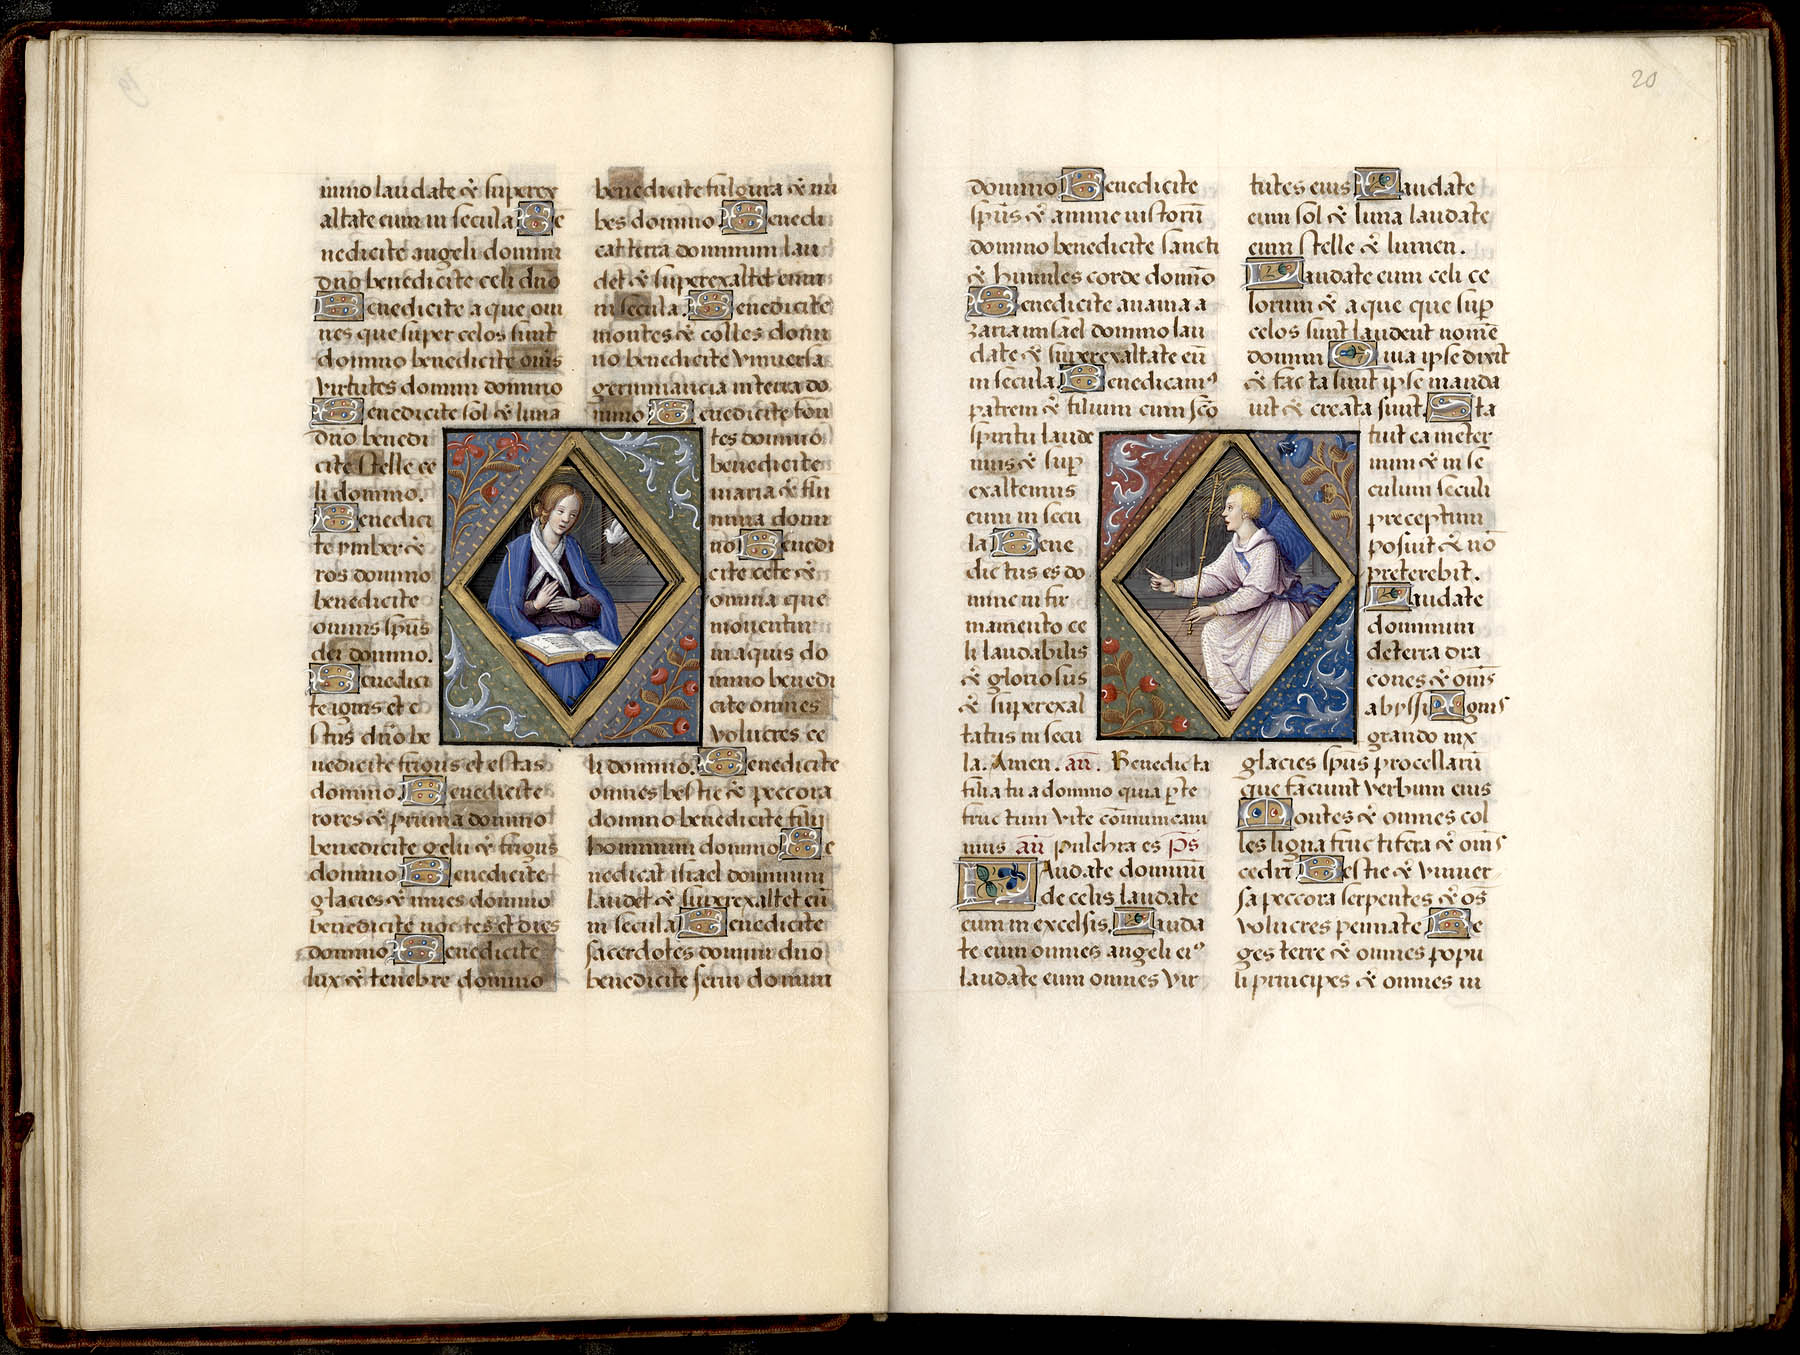 mino laudate & superex
altate eum in secula Be
nedicite angeli domini
dño benedicite celi dño
Benedicite aque om
nes que super celos sunt
domino benedicite oñis
virtutes domini domino
Benedicite sol & luna
dño benedi
cite stelle ce
li domino.
Benedici
te ymber &
ros domino
benedicite
omnis spũs
dei domino.
Benedici
te ignis et e
stus dño be
nedicite frigus et estas
domino. Benedicite
rores & pruina domino
benedicite gelu & frigus
domino Benedicite
glacies & nives domino
benedicite noctes et dies
domino. Benedicite
lux & tenebre domino
benedicite fulgura & nu
bes domino Benedi
cat terra dominum lau
det & superexaltet eum
in secula. Benedicite
montes & colles domi
no benedicite vniversa
germinancia in terra do
mino Benedicite fon
tes domino
benedicite
maria & flu
mina domi
no Benedi
cite cete &
omnia que
moventur
in aquis do
mino benedi
cite omnes
volucres ce
li domino. Benedicite
omnes bestie & peccora
domino benedicite filij
hominum domino Be
nedicat israel dominum
laudet & superexaltet eũ
in secula Benedicite
sacerdotes domini dño
benedicite servi domini
20
domino Benedicite
spũs & anime iustorũ
domino benedicite sancti
& humiles corde domĩo
Benedicite anania a
zaria misael domino lau
date & superexaltate eũ
in secula Benedicamꝰ
patrem & filium cum scõ
spiritu laude
mus & suꝑ
exaltemus
eum in secu
la Bene
dictus es do
mine in fir
mamento ce
li laudabilis
& gloriosus
& superexal
tatus in secu
la. Amen. añ. Benedicta
filia tu a domino quia ꝑ te
fructum vite cõmunicavi
mus añ pulchra es ps
LAudate dominũ
de celis laudate
eum in excelsis. Lauda
te eum omnes angeli eiꝰ
laudate eum omnes vir
tutes eius Laudate
eum sol & luna laudate
eum stelle & lumen.
Laudate eum celi ce
lorum & aque que suꝑ
celos sunt laudent nomẽ
domini Quia ipse dixit
& facta sunt ipse manda
vit & creata sunt. Sta
tuit ea in eter
num & in se
culum seculi
preceptum
posuit & nõ
preteribit.
Laudate
dominum
de terra dra
cones & oñis
abyssi Ignis
grando nix
glacies spũs procellarũ
que faciunt verbum eius
Montes & omnes col
les ligna fructifera & oñis
cedri Bestie & vniver
sa peccora serpentes & oẽs
volucres pennate Re
ges terre & omnes popu
li principes & omnes iu